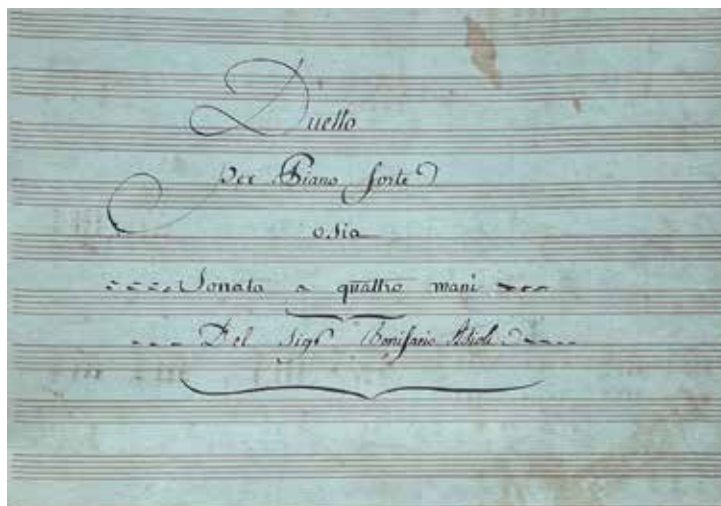 Duetto
per Piano forte
o sia
Sonata a quattro mani
Del Sigr Bonifazio Asioli